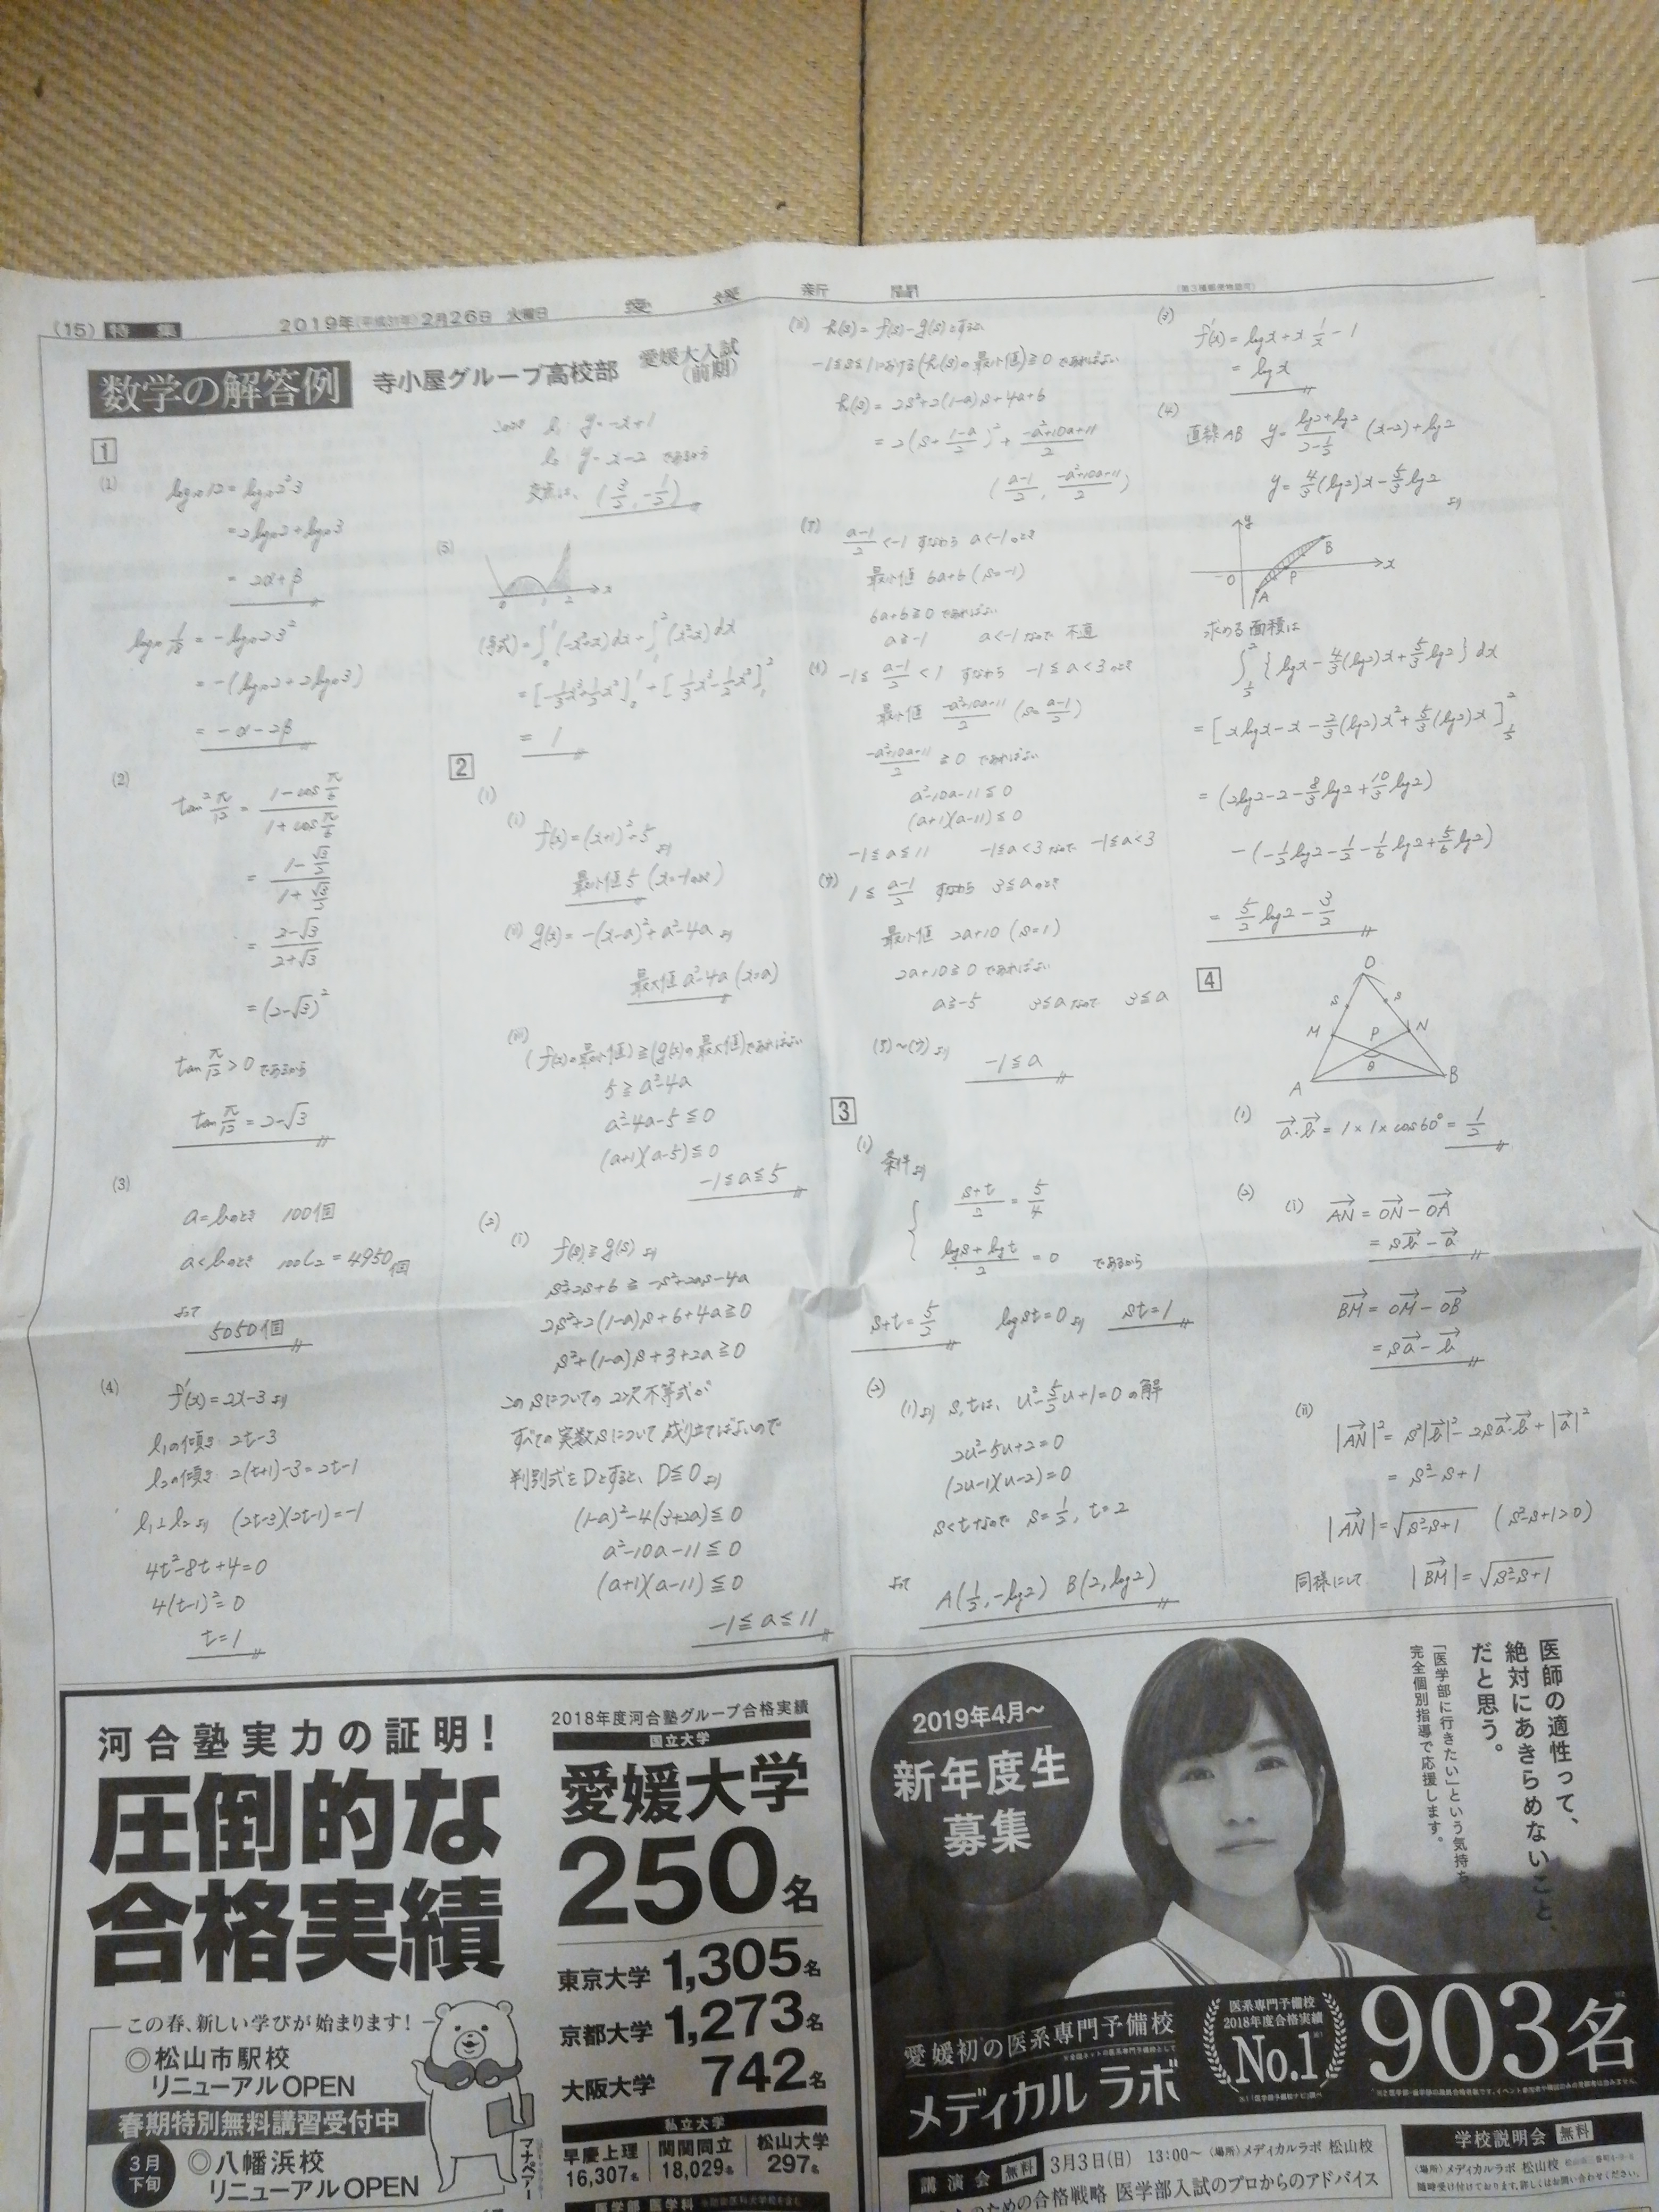 (15) 特集 2019年(平成31年)2月26日 火曜日 愛媛新聞 (第3種郵便物認可)
数学の解答例 寺小屋グループ高校部 愛媛大入試(前期)
1
(1)
log₁₀12 = log₁₀2²3
= 2log₁₀2+log₁₀3
= 2α+β
log₁₀1/18 = -log₁₀2·3²
= -(log₁₀2+2log₁₀3)
= -α-2β
(2)
tan²π/12 = (1-cosπ/6)/(1+cosπ/6)
= (1-√3/2)/(1+√3/2)
= (2-√3)/(2+√3)
= (2-√3)²
tanπ/12>0 であるから
tanπ/12 = 2-√3
(3)
a=bのとき 100個
a<bのとき ₁₀₀C₂ = 4950個
よって
5050個
(4)
f'(x) = 2x-3 より
l₁の傾き 2t-3
l₂の傾き 2(t+1)-3=2t-1
l₁⊥l₂より (2t-3)(2t-1)=-1
4t²-8t+4=0
4(t-1)²=0
t=1
このとき l₁ y=-x+1
l₂ y=x-2 であるから
交点は、(3/2, -1/2)
(5)
0 1 2 x
(与式)=∫₀¹(-x²+x)dx+∫₁²(x²-x)dx
=[-1/3x³+1/2x²]₀¹+[1/3x³-1/2x²]₁²
= 1
2
(1)
(i)
f(x)=(x+1)²+5 より
最小値5 (x=-1のとき)
(ii) g(x)=-(x-a)²+a²-4a より
最大値 a²-4a (x=a)
(iii)
(f(x)の最小値)≧(g(x)の最大値)であればよい
5≧a²-4a
a²-4a-5≦0
(a+1)(a-5)≦0
-1≦a≦5
(2)
(i)
f(s)≧g(s) より
s²+2s+6≧-s²+2as-4a
2s²+2(1-a)s+6+4a≧0
s²+(1-a)s+3+2a≧0
このsについての2次不等式が
すべての実数sについて成り立てばよいので
判別式をDとすると、D≦0より
(1-a)²-4(3+2a)≦0
a²-10a-11≦0
(a+1)(a-11)≦0
-1≦a≦11
(ii) h(s)=f(s)-g(s)とすると
-1≦s≦1における(h(s)の最小値)≧0であればよい
h(s)=2s²+2(1-a)s+4a+6
=2(s+(1-a)/2)²+(-a²+10a+11)/2
(ア)
(a-1)/2<-1 すなわち a<-1のとき
最小値 6a+6 (s=-1)
6a+6≧0であればよい
a≧-1 a<-1なので 不適
(イ) -1≦(a-1)/2<1 すなわち -1≦a<3のとき
最小値 (-a²+10a+11)/2 (s=(a-1)/2)
(-a²+10a+11)/2≧0であればよい
a²-10a-11≦0
(a+1)(a-11)≦0
-1≦a≦11 -1≦a<3なので -1≦a<3
(ウ) 1≦(a-1)/2 すなわち 3≦aのとき
最小値 2a+10 (s=1)
2a+10≧0であればよい
a≧-5 3≦aなので 3≦a
(ア)~(ウ)より
-1≦a
3
(1)
条件より
(s+t)/2=5/4
(log s+log t)/2=0 であるから
s+t=5/2 log st=0より st=1
(2)
(1)より s,tは、u²-5/2u+1=0の解
2u²-5u+2=0
(2u-1)(u-2)=0
s<tなので s=1/2, t=2
よって A(1/2, -log2) B(2, log2)
(3)
f'(x)=log x+x·1/x-1
=log x
(4)
直線AB y=(log2+log2)/(2-1/2)(x-2)+log2
y=4/3(log2)x-5/3log2
より
y B O P x A
求める面積は
∫{log x-4/3(log2)x+5/3log2}dx
=[x log x-x-2/3(log2)x²+5/3(log2)x]
=(2log2-2-8/3log2+10/3log2)
-(-1/2log2-1/2-1/6log2+5/6log2)
=5/2log2-3/2
4
O
s s
M P N
θ
A B
(1) a·b=1×1×cos60°=1/2
(2) (i) AN=ON-OA
=sb-a
BM=OM-OB
=sa-b
(ii)
|AN|²=s²|b|²-2sa·b+|a|²
=s²-s+1
|AN|=√(s²-s+1) (s²-s+1>0)
同様にして |BM|=√(s²-s+1)
河合塾実力の証明!
圧倒的な
合格実績
この春、新しい学びが始まります!
◎松山市駅校
リニューアルOPEN
春期特別無料講習受付中
3月下旬
◎八幡浜校
リニューアルOPEN
マナベアー
2018年度河合塾グループ合格実績
国立大学
愛媛大学
250名
東京大学 1,305名
京都大学 1,273名
大阪大学 742名
私立大学
早慶上理 16,307名
関関同立 18,029名
松山大学 297名
医学部 医学科
2019年4月~
新年度生
募集
医師の適性って、
絶対にあきらめないこと、
だと思う。
「医学部に行きたい」という気持ち
完全個別指導で応援します。
愛媛初の医系専門予備校
メディカル ラボ
医系専門予備校
2018年度合格実績
No.1
903名
講演会 無料 3月3日(日) 13:00~〈場所〉メディカルラボ 松山校
のための合格戦略 医学部入試のプロからのアドバイス
学校説明会 無料
〈場所〉メディカルラボ 松山校
随時受け付けております。詳しくはお問い合わせください。